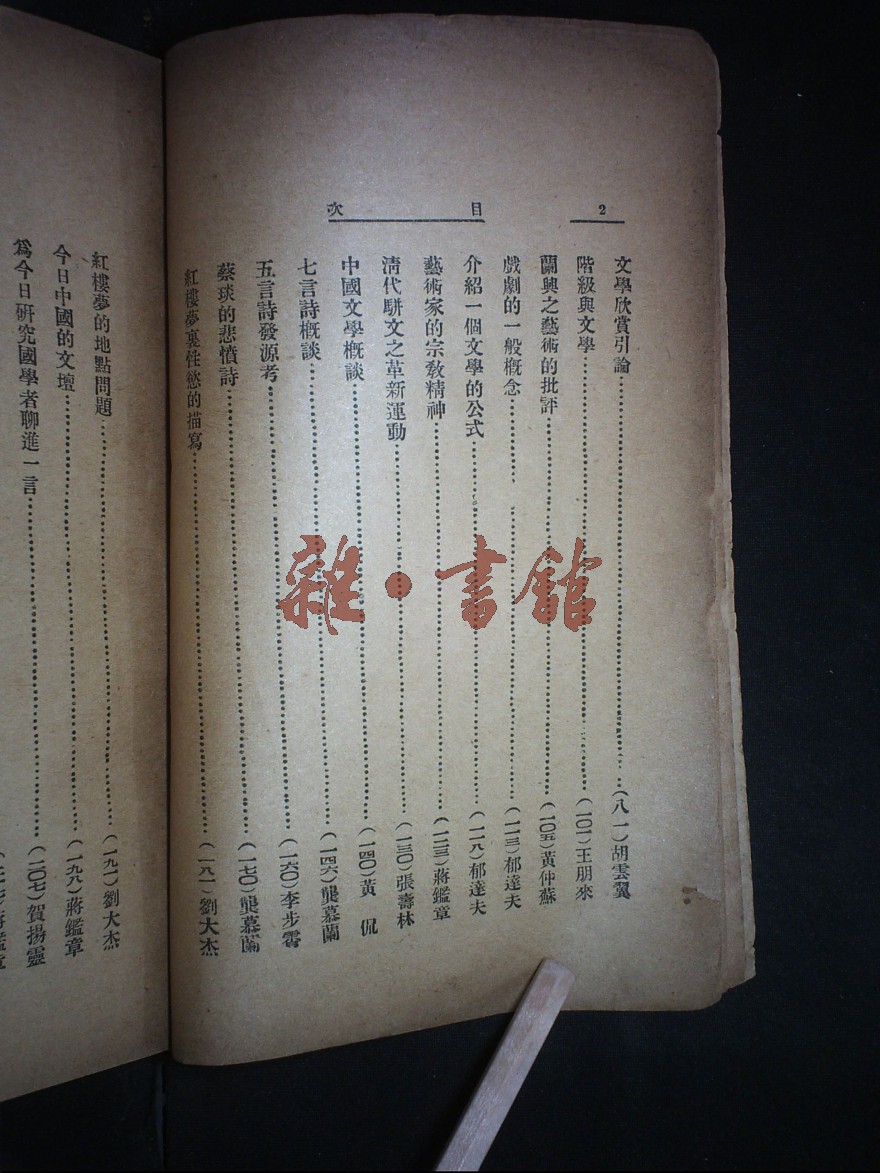 2
目次
文學欣賞引論(八一)胡雲翼
階級與文學(一〇一)王朋來
蘭興之藝術的批評(一〇五)黃仲蘇
戲劇的一般概念(一一三)郁達夫
介紹一個文學的公式(一一八)郁達夫
藝術家的宗教精神(一二三)蔣鑑章
清代駢文之革新運動(一三〇)張壽林
中國文學概談(一四〇)黃侃
七言詩概談(一四六)龔慕蘭
五言詩發源考(一六〇)李步霽
蔡琰的悲憤詩(一七〇)龔慕蘭
紅樓夢裏性慾的描寫(一八一)劉大杰
紅樓夢的地點問題(一九一)劉大杰
今日中國的文壇(一九八)蔣鑑章
爲今日研究國學者聊進一言(二〇七)賀揚靈
雜·書館